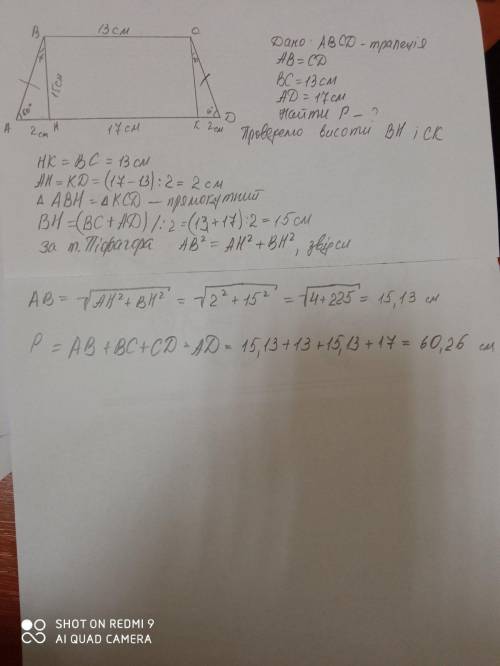 13 см
B C
15 см
A 2 см H 17 см K 2 см D
Дано: ABCD - трапеція
AB = CD
BC = 13 см
AD = 17 см
Найти P - ?
Проведемо висоти BH і CK
HK = BC = 13 см
AH = KD = (17 - 13) : 2 = 2 см
△ ABH = △ KCD - прямокутний
BH = (BC + AD) / : 2 = (13 + 17) : 2 = 15 см
За т. Піфагора AB² = AH² + BH², звідси
AB = √AH² + BH² = √2² + 15² = √4 + 225 = 15,13 см
P = AB + BC + CD = AD = 15,13 + 13 + 15,13 + 17 = 60,26 см
SHOT ON REDMI 9
AI QUAD CAMERA